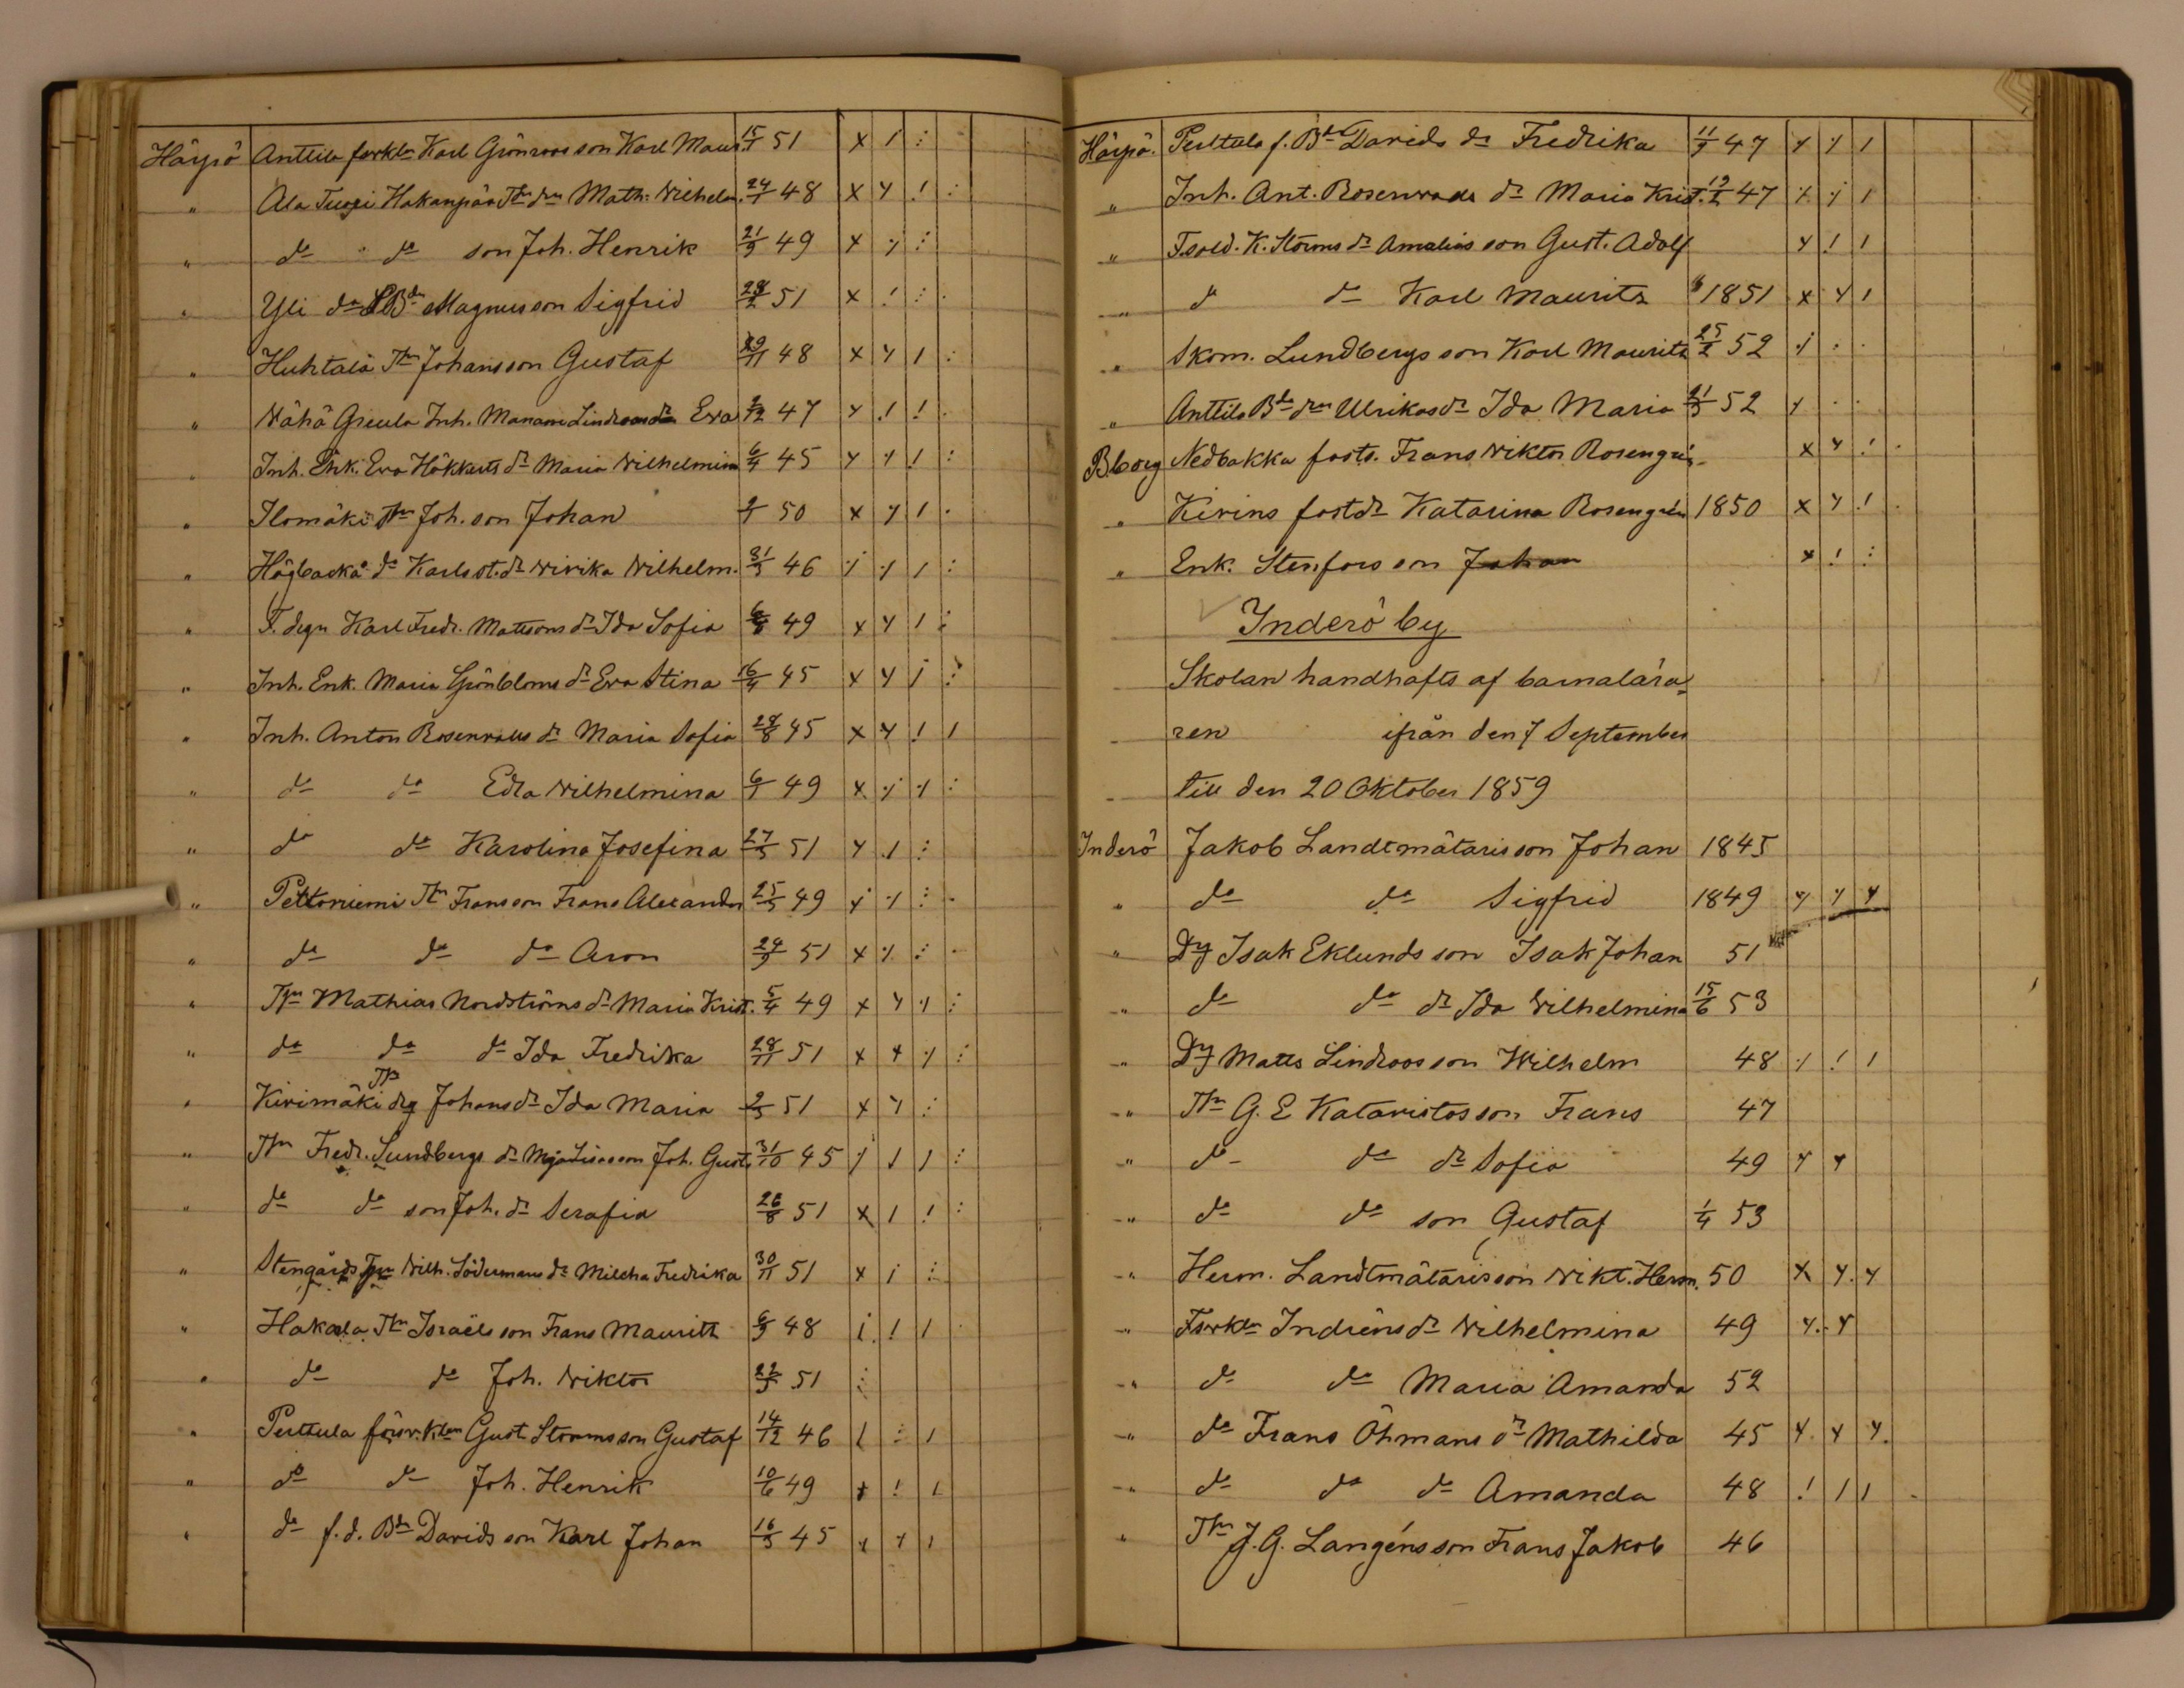 Härpö Anttila forkln Karl Grönroos son Karl Maur. 15/1 51 x / :
" Ala Tuogi Hakanpää Thn drn Math. Wilhelm. 24/1 48 x y ! :
" do " do son Joh. Henrik 21/9 49 x y :
" Yli do Bdn Magnus son Sigfrid 51 x ! :
" Huhtala Thn Johans son Gustaf 48 x y / :
" Wähä Greula Inh. Lindroos dr Eva 47 y ! !
" Inh. Enk. Eva Häkkerts dr Maria Wilhelmina 6/4 45 y y ! :
" Ilomäki Thn Joh. son Johan 50 x y / .
" Högbacka do Karls st. dr Wivika Wilhelm. 31/3 46 y y / :
" F. degn Karl Fredr. Mattsons dr Ida Sofia 49 x y / :
" Inh. Enk. Maria Grönbloms dr Eva Stina 16/4 45 x y / :
" Inh. Anton Rosenvalls dr Maria Sofia 28/8 45 x y ! /
" do do Edla Wilhelmina 6/1 49 x y y :
" do do Karolina Josefina 27/5 51 y / :
" Pettoniemi Thn Frans son Frans Alexander 25/5 49 y y : .
" do do do Aron 51 x y : .
" Tjn Mathias Nordströms dr Maria Krist. 5/4 49 x y y :
" do do do Ida Fredrika 28/11 51 x x y :
" Kivimäki Johans dr Ida Maria 51 x y :
" Thn Fredr. Sundbergs dr Maja Lisas son Joh. Gust. 31/10 45 y / / :
" do do son Joh. dr Serafia 26/8 51 x / ! :
" Stengårds Wilh. Södermans dr Milcha Fredrika 30/11 51 x / :
" Hakala Thn Israëls son Frans Mauritz 48 / ! /
" do do Joh. Wiktor 51 :
" Perttula försv. kln Gust. Storms son Gustaf 14/12 46 / : /
" do do Joh. Henrik 10/6 49 x ! /
" do f. d. Bdn Davids son Karl Johan 16/3 45 x y /
Härpö. Perttula f. Bdn Davids dr Fredrika 11/9 47 y y /
" Inh. Ant. Rosenvalls dr Maria Krist. 47 y y /
" F. sold. K. Storms dr Amalias son Gust. Adolf y ! /
" do do Karl Mauritz 1851 x y /
" Skom. Lundbergs son Karl Mauritz 25/2 52 y . .
" Anttila Bdn drn Ulrikas dr Ida Maria 52 y . .
B.borg Nedbakka fosts. Frans Wiktor Rosengrén x y ! .
" Kivins fostdr Katarina Rosengrén 1850 x y ! .
" Enk. Stenfors son Johan x ! :
Inderö by
Skolan handhafts af barnalära-
ren ifrån den 7 September
till den 20 Oktober 1859
Inderö Jakob Landtmätaris son Johan 1845
" do do Sigfrid 1849 y y y
" Isak Eklunds son Isak Johan 51
" do do dr Ida Wilhelmina 15/6 53
" Matts Lindroos son Wilhelm 48 y ! /
" Thn G. E Katavistos son Frans 47
" do do dr Sofia 49 y y
" do do son Gustaf 1/4 53
" Herm. Landtmätaris son Wikt. Herm. 50 x y. y
" Fsvkln Indréns dr Wilhelmina 49 y. y
" do do Maria Amanda 52
" do Frans Öhmans dr Mathilda 45 y. y y.
" do do do Amanda 48 ! / / .
" Thn J. G. Langéns son Frans Jakob 46